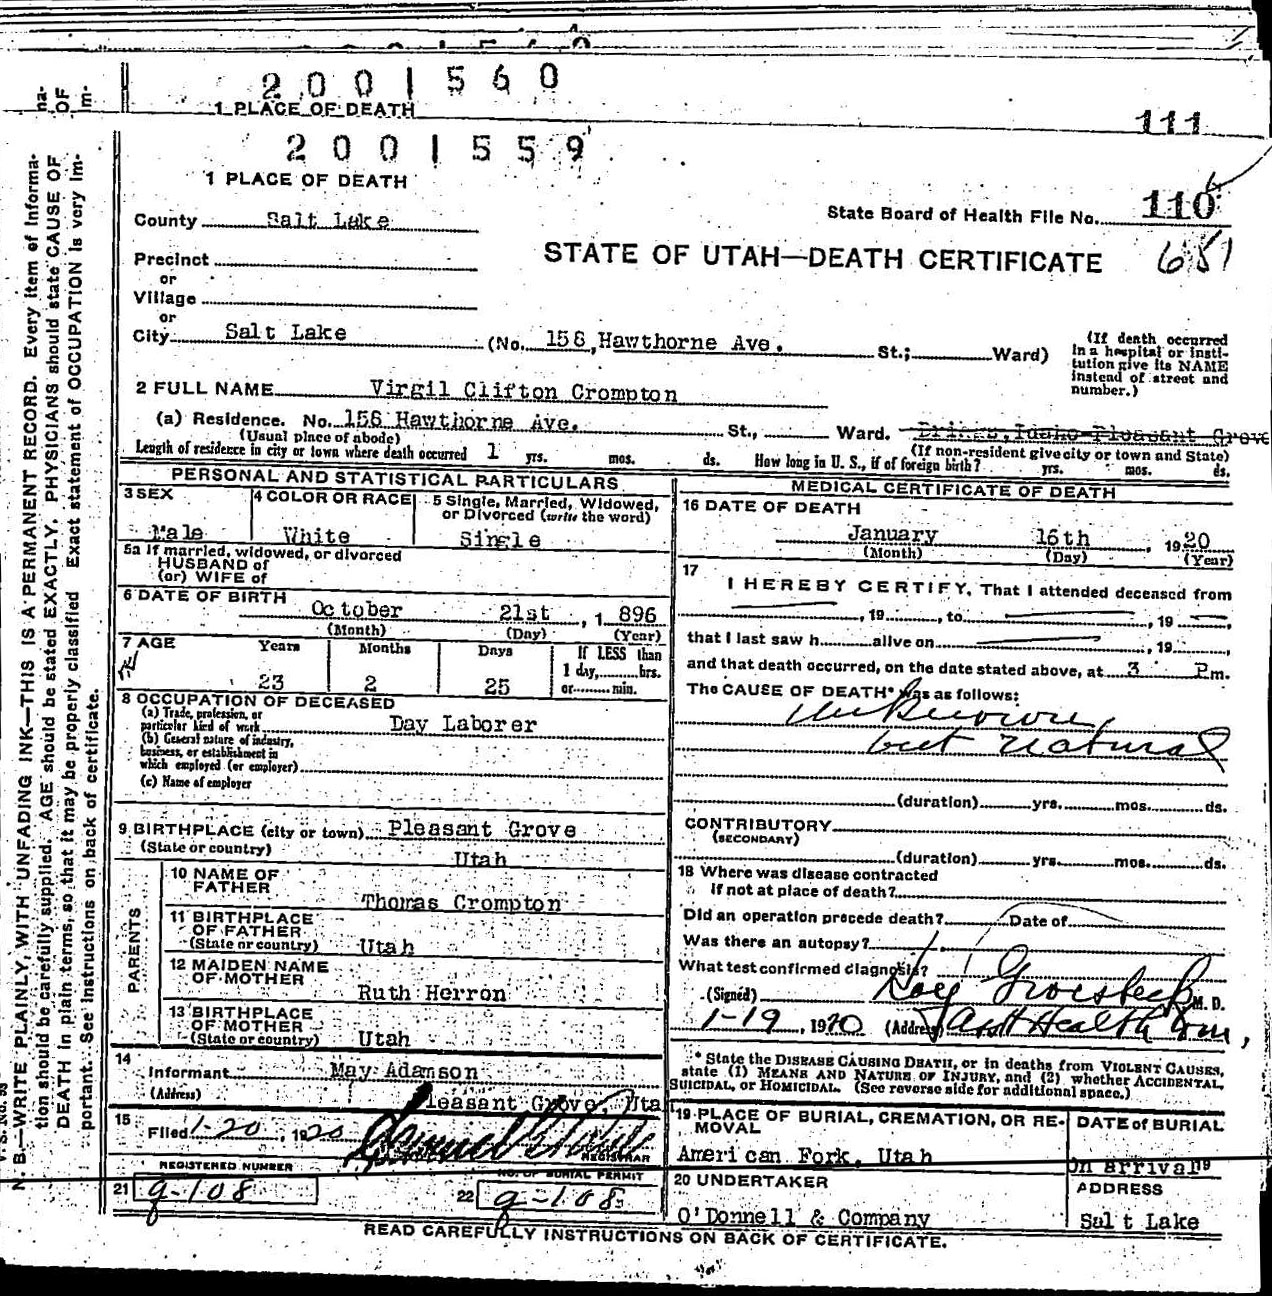 2001560
1 PLACE OF DEATH
111
2001559
1 PLACE OF DEATH
State Board of Health File No. 110
651
County Salt Lake
STATE OF UTAH—DEATH CERTIFICATE
Precinct
or
Village
or
City Salt Lake (No. 158, Hawthorne Ave. St.; Ward)
(If death occurred in a hospital or institution give its NAME instead of street and number.)
2 FULL NAME Virgil Clifton Crompton
(a) Residence. No. 156 Hawthorne Ave. St., Ward. Driggs, Idaho Pleasant Grove
(Usual place of abode) (If non-resident give city or town and State)
Length of residence in city or town where death occurred 1 yrs. mos. ds. How long in U. S., if of foreign birth? yrs. mos. ds.
PERSONAL AND STATISTICAL PARTICULARS
3 SEX Male
4 COLOR OR RACE White
5 Single, Married, Widowed, or Divorced (write the word) Single
5a If married, widowed, or divorced
HUSBAND of
(or) WIFE of
6 DATE OF BIRTH October 21st, 1896
(Month) (Day) (Year)
7 AGE Years Months Days If LESS than
1 day, hrs.
or min.
23 2 25
8 OCCUPATION OF DECEASED
(a) Trade, profession, or
particular kind of work Day Laborer
(b) General nature of industry,
business, or establishment in
which employed (or employer)
(c) Name of employer
9 BIRTHPLACE (city or town) Pleasant Grove
(State or country) Utah
PARENTS
10 NAME OF
FATHER Thomas Crompton
11 BIRTHPLACE
OF FATHER
(State or country) Utah
12 MAIDEN NAME
OF MOTHER Ruth Herron
13 BIRTHPLACE
OF MOTHER
(State or country) Utah
14
Informant May Adamson
(Address) Pleasant Grove, Uta
15
Filed 1-20, 1920
REGISTRAR
REGISTERED NUMBER
21 g-108
NO. OF BURIAL PERMIT
22 g-108
MEDICAL CERTIFICATE OF DEATH
16 DATE OF DEATH
January 16th, 1920
(Month) (Day) (Year)
17
I HEREBY CERTIFY, That I attended deceased from
, 19 , to , 19 ,
that I last saw h alive on , 19 ,
and that death occurred, on the date stated above, at 3 P m.
The CAUSE OF DEATH* was as follows:
Unknown,
but natural
(duration) yrs. mos. ds.
CONTRIBUTORY
(SECONDARY)
(duration) yrs. mos. ds.
18 Where was disease contracted
if not at place of death?
Did an operation precede death? Date of
Was there an autopsy?
What test confirmed diagnosis?
(Signed) Roy Groesbeck M. D.
1-19, 1920 (Address) Asst Health Com,
* State the DISEASE CAUSING DEATH, or in deaths from VIOLENT CAUSES,
state (1) MEANS AND NATURE OF INJURY, and (2) whether ACCIDENTAL,
SUICIDAL, or HOMICIDAL. (See reverse side for additional space.)
19 PLACE OF BURIAL, CREMATION, OR REMOVAL
American Fork, Utah
DATE of BURIAL
On arrival 19
20 UNDERTAKER
O'Donnell & Company
ADDRESS
Salt Lake
READ CAREFULLY INSTRUCTIONS ON BACK OF CERTIFICATE.
N. B.—WRITE PLAINLY, WITH UNFADING INK—THIS IS A PERMANENT RECORD. Every item of informa-
tion should be carefully supplied. AGE should be stated EXACTLY. PHYSICIANS should state CAUSE OF
DEATH in plain terms, so that it may be properly classified. Exact statement of OCCUPATION is very im-
portant. See instructions on back of certificate.